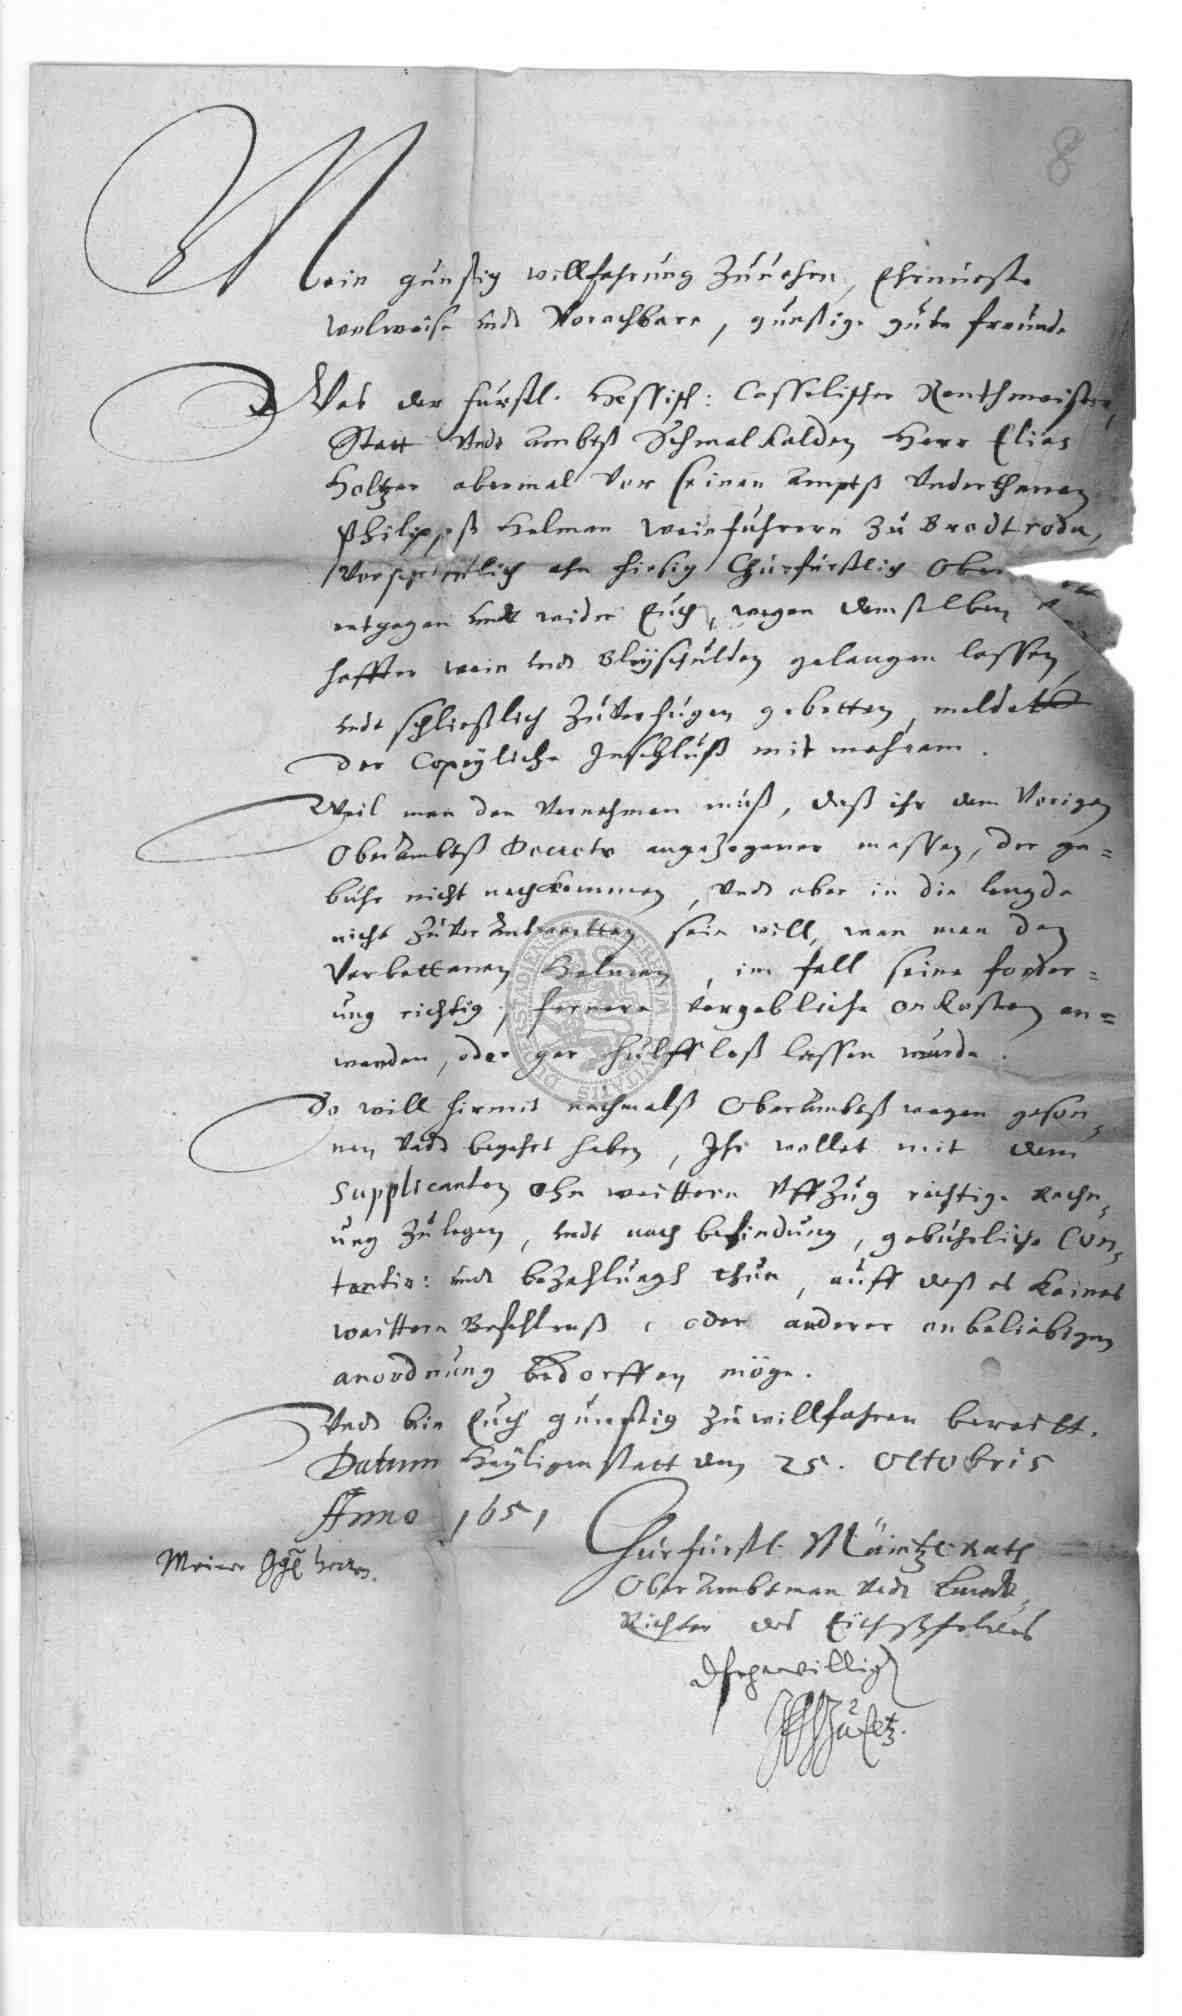 8
Mein günstig willfahrung zuuohrn, Ehrnueste
wolweise undt Vorachbare, günstige gute freunde
Was der Fürstl. Hessisch: Casselischer Renthmeister,
Statt Undt Ambtß Schmalkalden Herr Elias
Holtzer abermal vor seinen Amptß Underthanen
Philippß Holman Weinführern zu Brodtroda,
Vorschrifftlich ahn hiesig Churfürstlich Ober
entgegen undt wider Euch, wegen demselben
haffter wein undt Bleyschulden gelangen lassen,
undt schließlich zuverfügen gebetten, meldet
der Copeyliche Inschluß mit mehrem.
Weil man den Vernehmen muß, daß ihr dem Vorigen
Oberambtß Decreto angezogener massen, der ge=
bühr nicht nachkommen, Undt aber in die lengde
nicht zuverantwortten sein will, wan man den
Verbottenen Holman, im fall seine forder=
ung richtig, fernere vergebliche onkosten an=
wenden, oder gar hülffloß lassen wurde.
So will hiermit nachmalß Oberambtß wegen geson=
nen Undt begehrt haben, Ihr wollet mit dem
Supplicanten ohn weittern Uffzug richtige Rechn=
ung zulegen, undt nach befindung, gebührliche Con=
tentir: undt bezahlungh thun, auff daß es keines
weittern Befehlnuß, oder anderer onbeliebigen
anordnung bedorffen möge.
Undt bin Euch günstig zuwillfahren bereitt.
Datum Heyligenstatt den 25. Octobris
Anno 1651
Churfürstl. Mäintz. Rath
Oberambtman Undt Landt=
Richter des Eichßfeldes
Meiner Ggl herrn.
willig